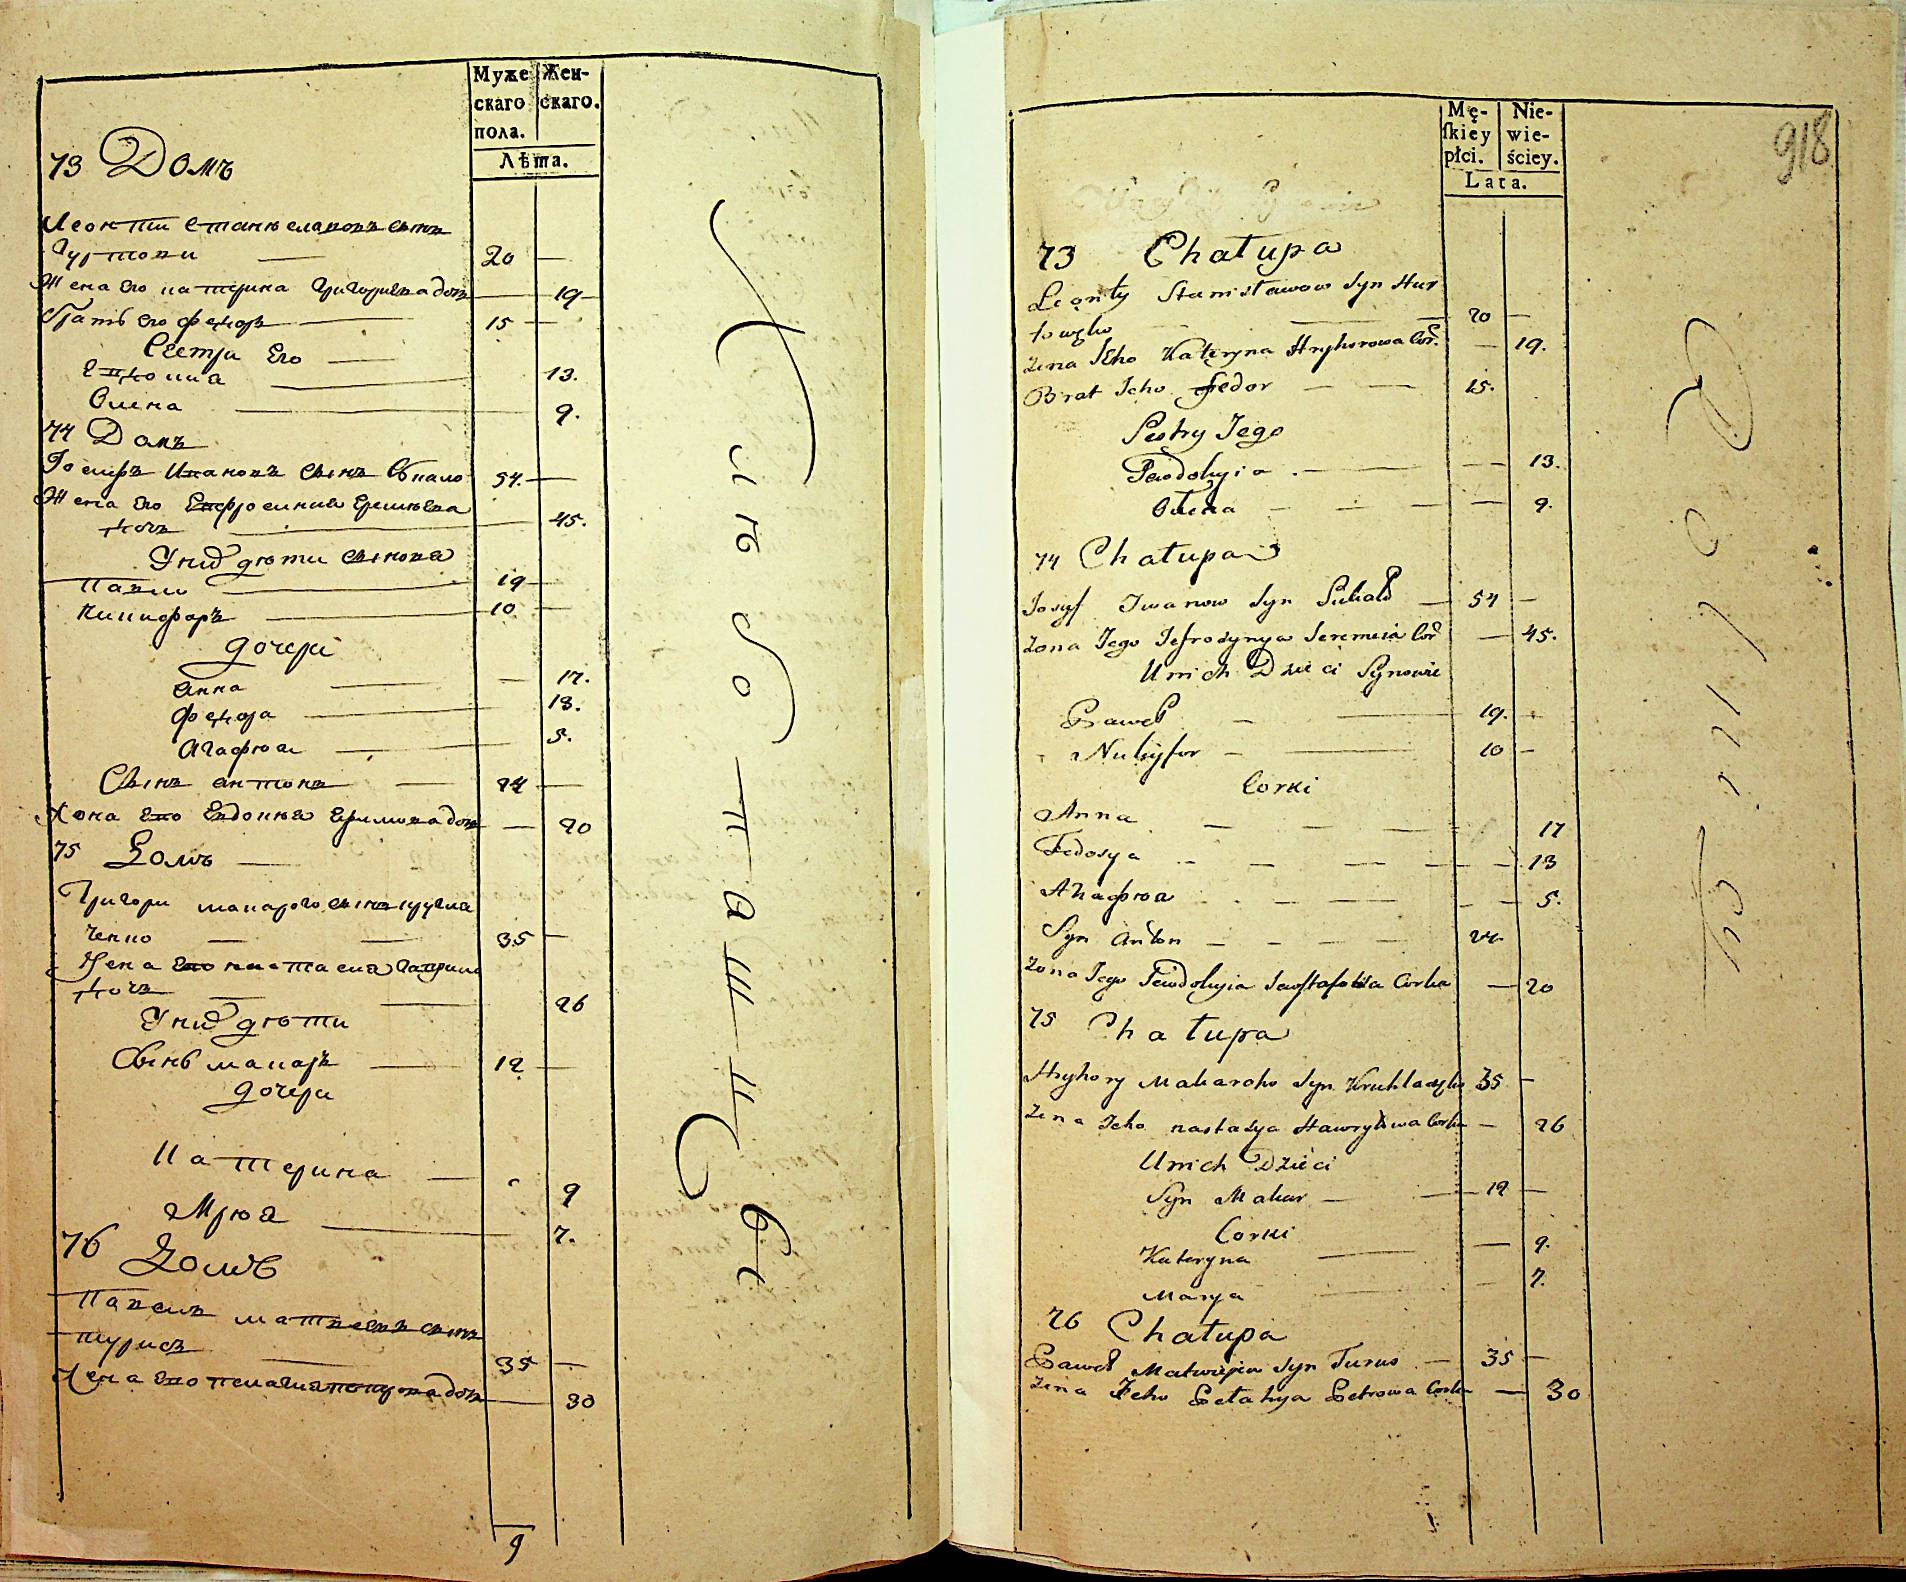 Муже Жен-
скаго скаго.
пола.
Лѣта.
73 Домъ
Леонти Станиславовъ сынъ
Гуртови 20
Жена его катерина Григорьева дочь 19
Братъ его федоръ 15
Сестри Его
Евдокия 13.
Олена 9.
74 Домъ
Иосифъ Ивановъ Сынъ 54.
Жена его Ефросиния Еремиева
дочь 45.
У них дѣти сынова
Павло 19
Никифоръ 10
дочери
Анна 17.
Федося 13.
Агафия 5.
Сынъ антонъ 24
Жона его Евдокия дочь 20
75 Домъ
Григори макарого сынъ кругла
ченко 35
Жена его настасия Гаврили
дочь 26
У них дѣти
Сынъ макаръ 12
дочери
Катерина 9
Мрия 7.
76 Домъ
Павелъ матвеевъ сынъ
турисъ 35
Жена его пелагия петрова дочь 30
9
Клѣбопашцы
Mę- Nie-
ſkiey wie-
płci. ściey.
Lata.
918
73 Chałupa
Leonty Stanisławow Syn Hur
towzko 20
Zona Jeho Kateryna Hryhorowa Cor. 19.
Brat Jeho Fedor 15.
Sestry Jego
Jewdokyia 13.
Ołena 9.
74 Chałupa
Josyf Iwanow Syn 54
Zona Jego Jefrosynya Jeremeia Cor 45.
Unich Dzieci Synowie
Paweł 19.
Nukyfor 10
Corki
Anna 17
Fedosya 13
Ahафия 5.
Syn Anton 24.
Zona Jego Jewdokyia Jewstafowa Corka 20
75 Chałupa
Hryhory Makaroho Syn 35
Zena Jeho nastasya Hawryłowa Corka 26
Unich Dzieci
Syn Makar 12
Corki
Kateryna 9.
Marya 7.
76 Chałupa
Paweł Matwiejew Syn Turus 35
Zena Jeho Pełahya Petrowa Corka 30